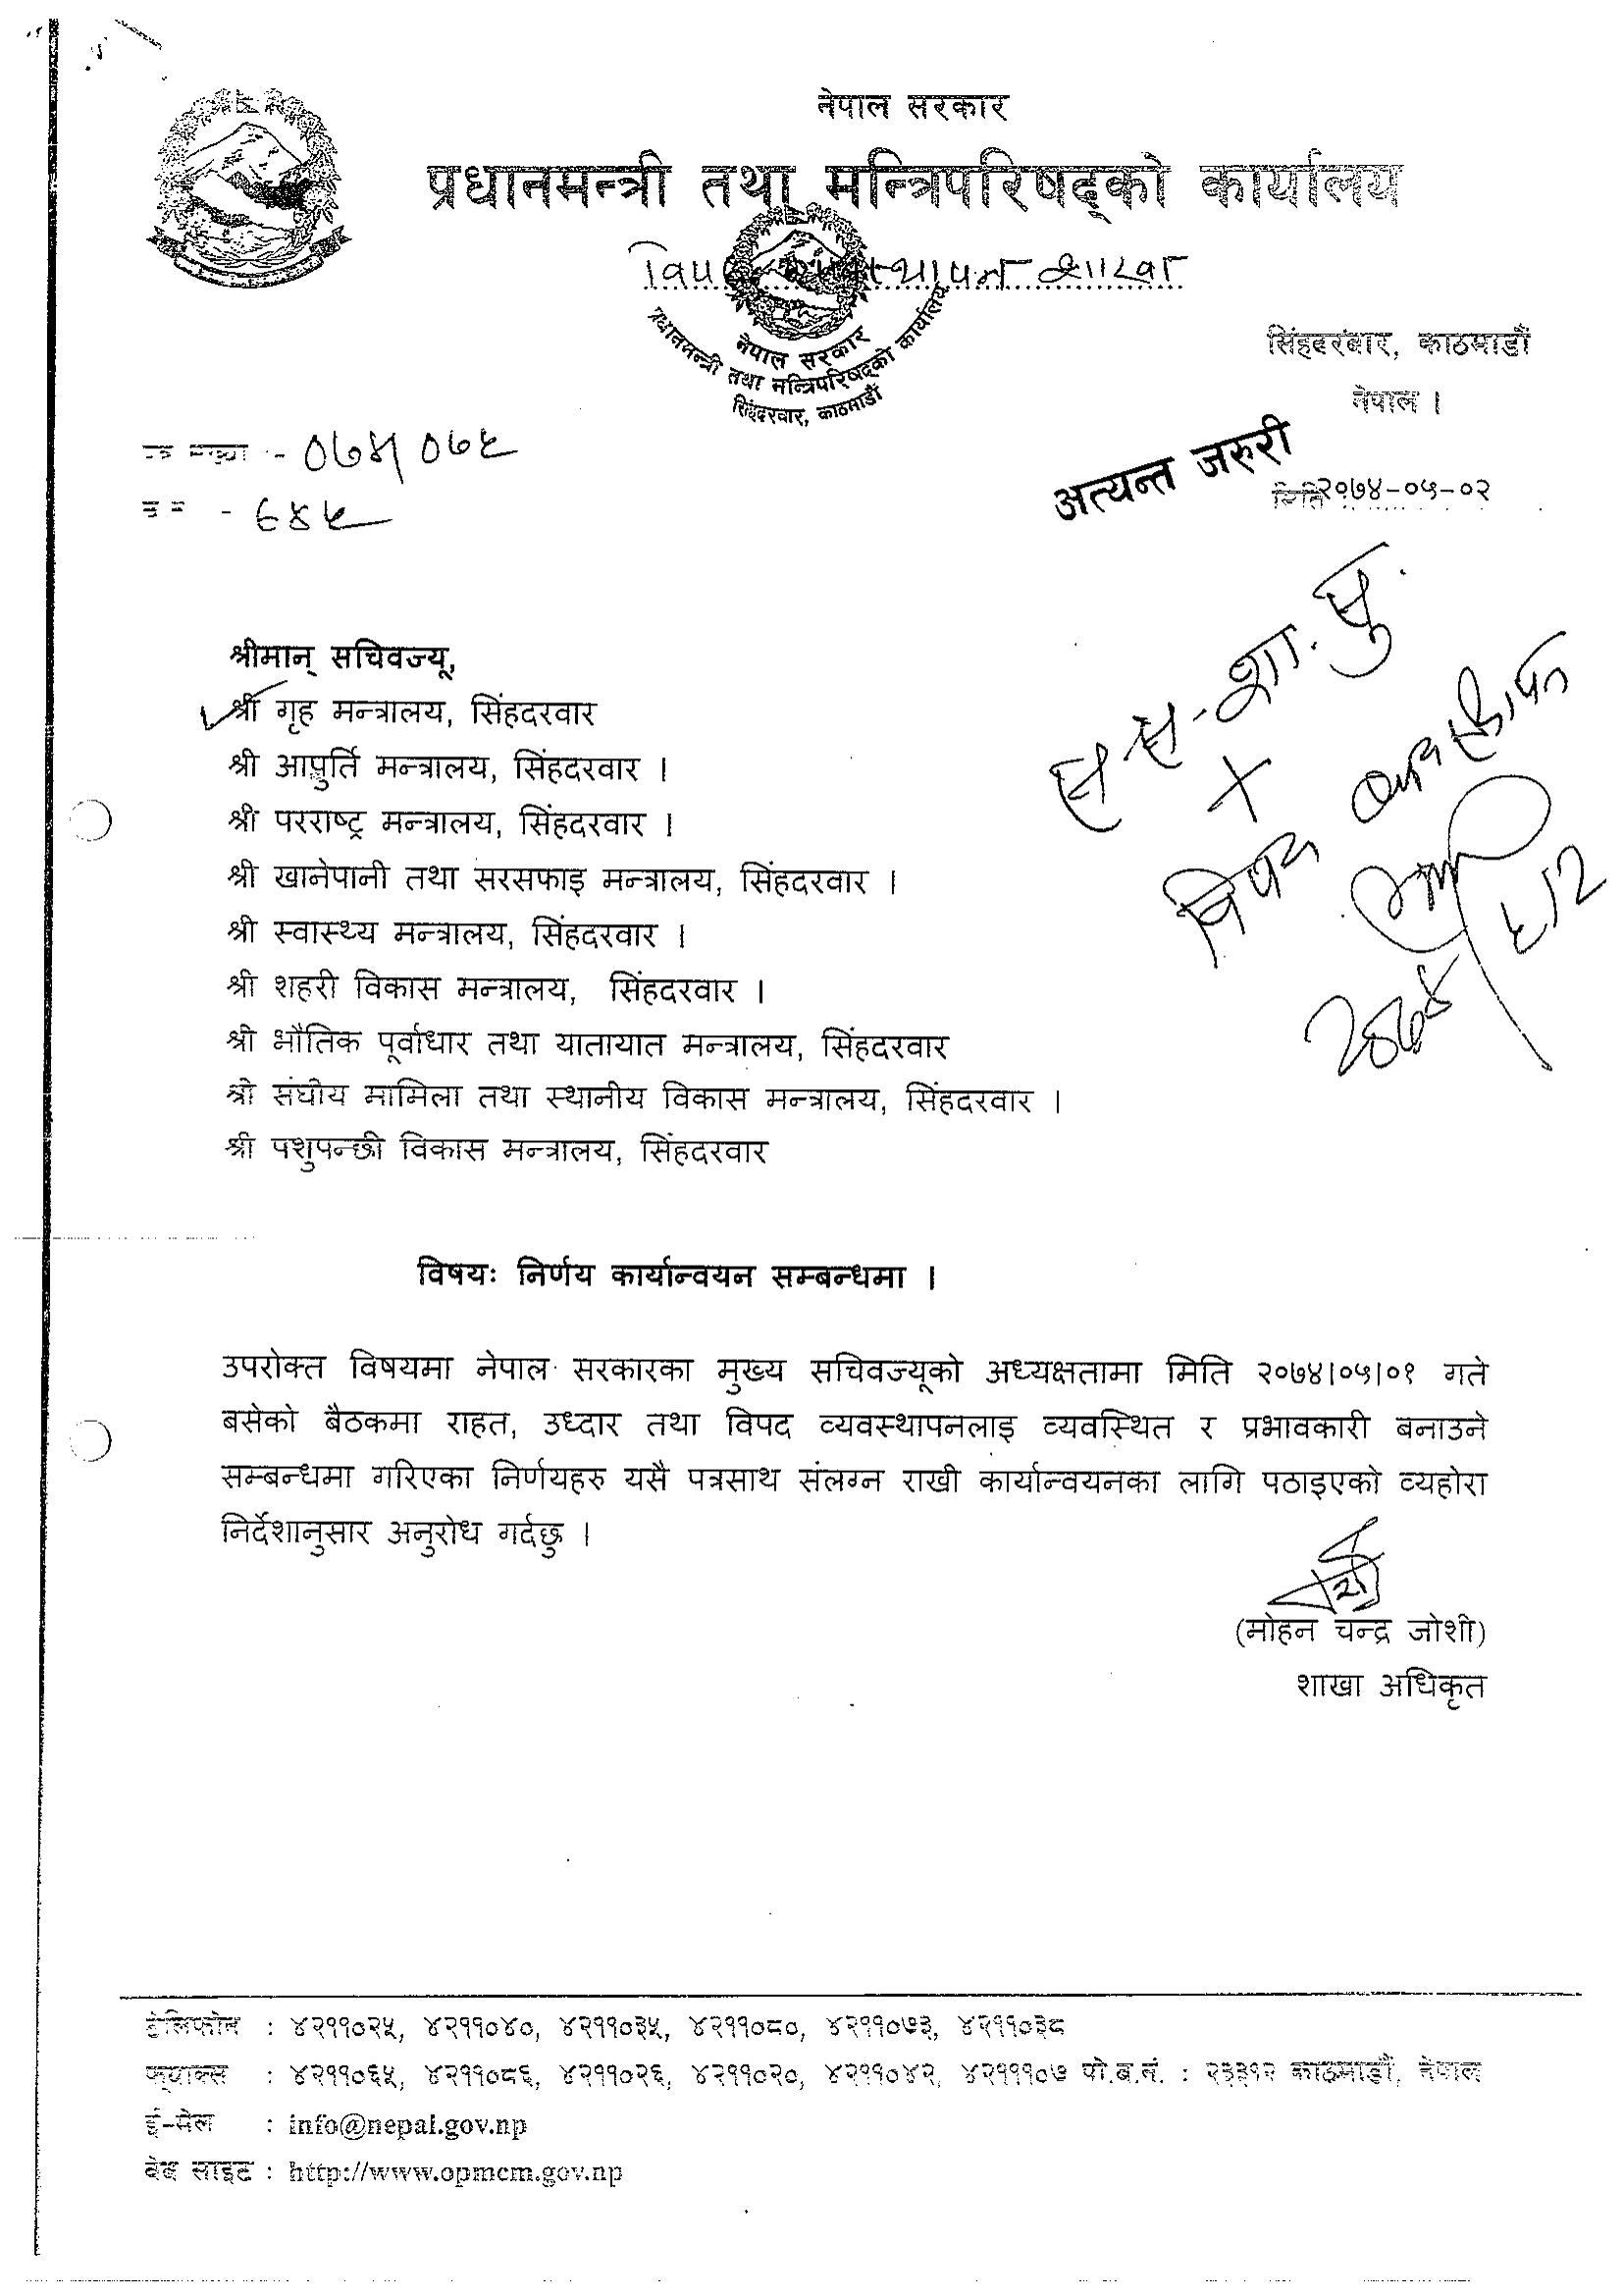 नेपाल सरकार
प्रधानमन्त्री तथा मन्त्रिपरिषद्को कार्यालय
शाखा
नेपाल सरकार
प्रधानमन्त्री तथा मन्त्रिपरिषद्को कार्यालय
सिंहदरवार, काठमाडौं
सिंहदरवार, काठमाडौं
नेपाल ।
अत्यन्त जरुरी
मिति २०७४-०५-०२
श्रीमान् सचिवज्यू,
श्री गृह मन्त्रालय, सिंहदरवार
श्री आपुर्ति मन्त्रालय, सिंहदरवार ।
श्री परराष्ट्र मन्त्रालय, सिंहदरवार ।
श्री खानेपानी तथा सरसफाइ मन्त्रालय, सिंहदरवार ।
श्री स्वास्थ्य मन्त्रालय, सिंहदरवार ।
श्री शहरी विकास मन्त्रालय, सिंहदरवार ।
श्री भौतिक पूर्वाधार तथा यातायात मन्त्रालय, सिंहदरवार
श्री संघीय मामिला तथा स्थानीय विकास मन्त्रालय, सिंहदरवार ।
श्री पशुपन्छी विकास मन्त्रालय, सिंहदरवार
विषयः निर्णय कार्यान्वयन सम्बन्धमा ।
उपरोक्त विषयमा नेपाल सरकारका मुख्य सचिवज्यूको अध्यक्षतामा मिति २०७४|०५|०१ गते
बसेको बैठकमा राहत, उध्दार तथा विपद व्यवस्थापनलाइ व्यवस्थित र प्रभावकारी बनाउने
सम्बन्धमा गरिएका निर्णयहरु यसै पत्रसाथ संलग्न राखी कार्यान्वयनका लागि पठाइएको व्यहोरा
निर्देशानुसार अनुरोध गर्दछु ।
(मोहन चन्द्र जोशी)
शाखा अधिकृत
टेलिफोन : ४२११०२५, ४२११०४०, ४२११०३५, ४२११०८०, ४२११०७३, ४२११०३८
फ्याक्स : ४२११०६५, ४२११०८६, ४२११०२६, ४२११०२०, ४२११०४२, ४२१११०७ पो.ब.नं. : २३३१२ काठमाडौं, नेपाल
ई-मेल : info@nepal.gov.np
वेब साइट : http://www.opmcm.gov.np